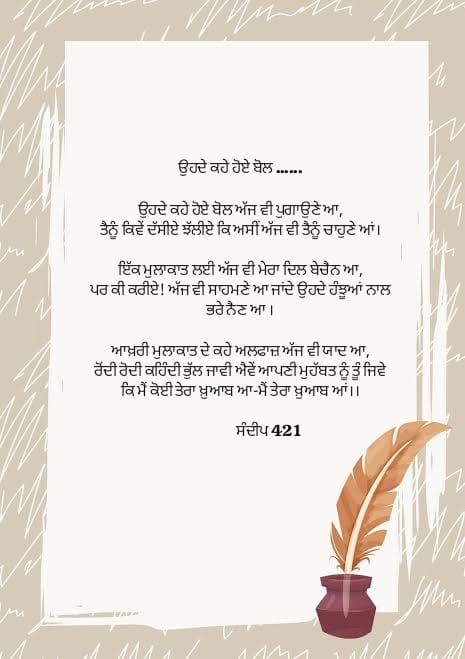 ਉਹਦੇ ਕਹੇ ਹੋਏ ਬੋਲ ......
ਉਹਦੇ ਕਹੇ ਹੋਏ ਬੋਲ ਅੱਜ ਵੀ ਪੁਗਾਉਣੇ ਆ,
ਤੈਨੂੰ ਕਿਵੇਂ ਦੱਸੀਏ ਝੱਲੀਏ ਕਿ ਅਸੀਂ ਅੱਜ ਵੀ ਤੈਨੂੰ ਚਾਹੁਣੇ ਆਂ।
ਇੱਕ ਮੁਲਾਕਾਤ ਲਈ ਅੱਜ ਵੀ ਮੇਰਾ ਦਿਲ ਬੇਚੈਨ ਆ,
ਪਰ ਕੀ ਕਰੀਏ! ਅੱਜ ਵੀ ਸਾਹਮਣੇ ਆ ਜਾਂਦੇ ਉਹਦੇ ਹੰਝੂਆਂ ਨਾਲ
ਭਰੇ ਨੈਣ ਆ ।
ਆਖ਼ਰੀ ਮੁਲਾਕਾਤ ਦੇ ਕਹੇ ਅਲਫਾਜ਼ ਅੱਜ ਵੀ ਯਾਦ ਆ,
ਰੋਂਦੀ ਰੋਦੀ ਕਹਿੰਦੀ ਭੁੱਲ ਜਾਵੀ ਐਵੇਂ ਆਪਣੀ ਮੁਹੱਬਤ ਨੂੰ ਤੂੰ ਜਿਵੇ
ਕਿ ਮੈਂ ਕੋਈ ਤੇਰਾ ਖ਼ੁਆਬ ਆ-ਮੈਂ ਤੇਰਾ ਖ਼ੁਆਬ ਆਂ।।
ਸੰਦੀਪ 421